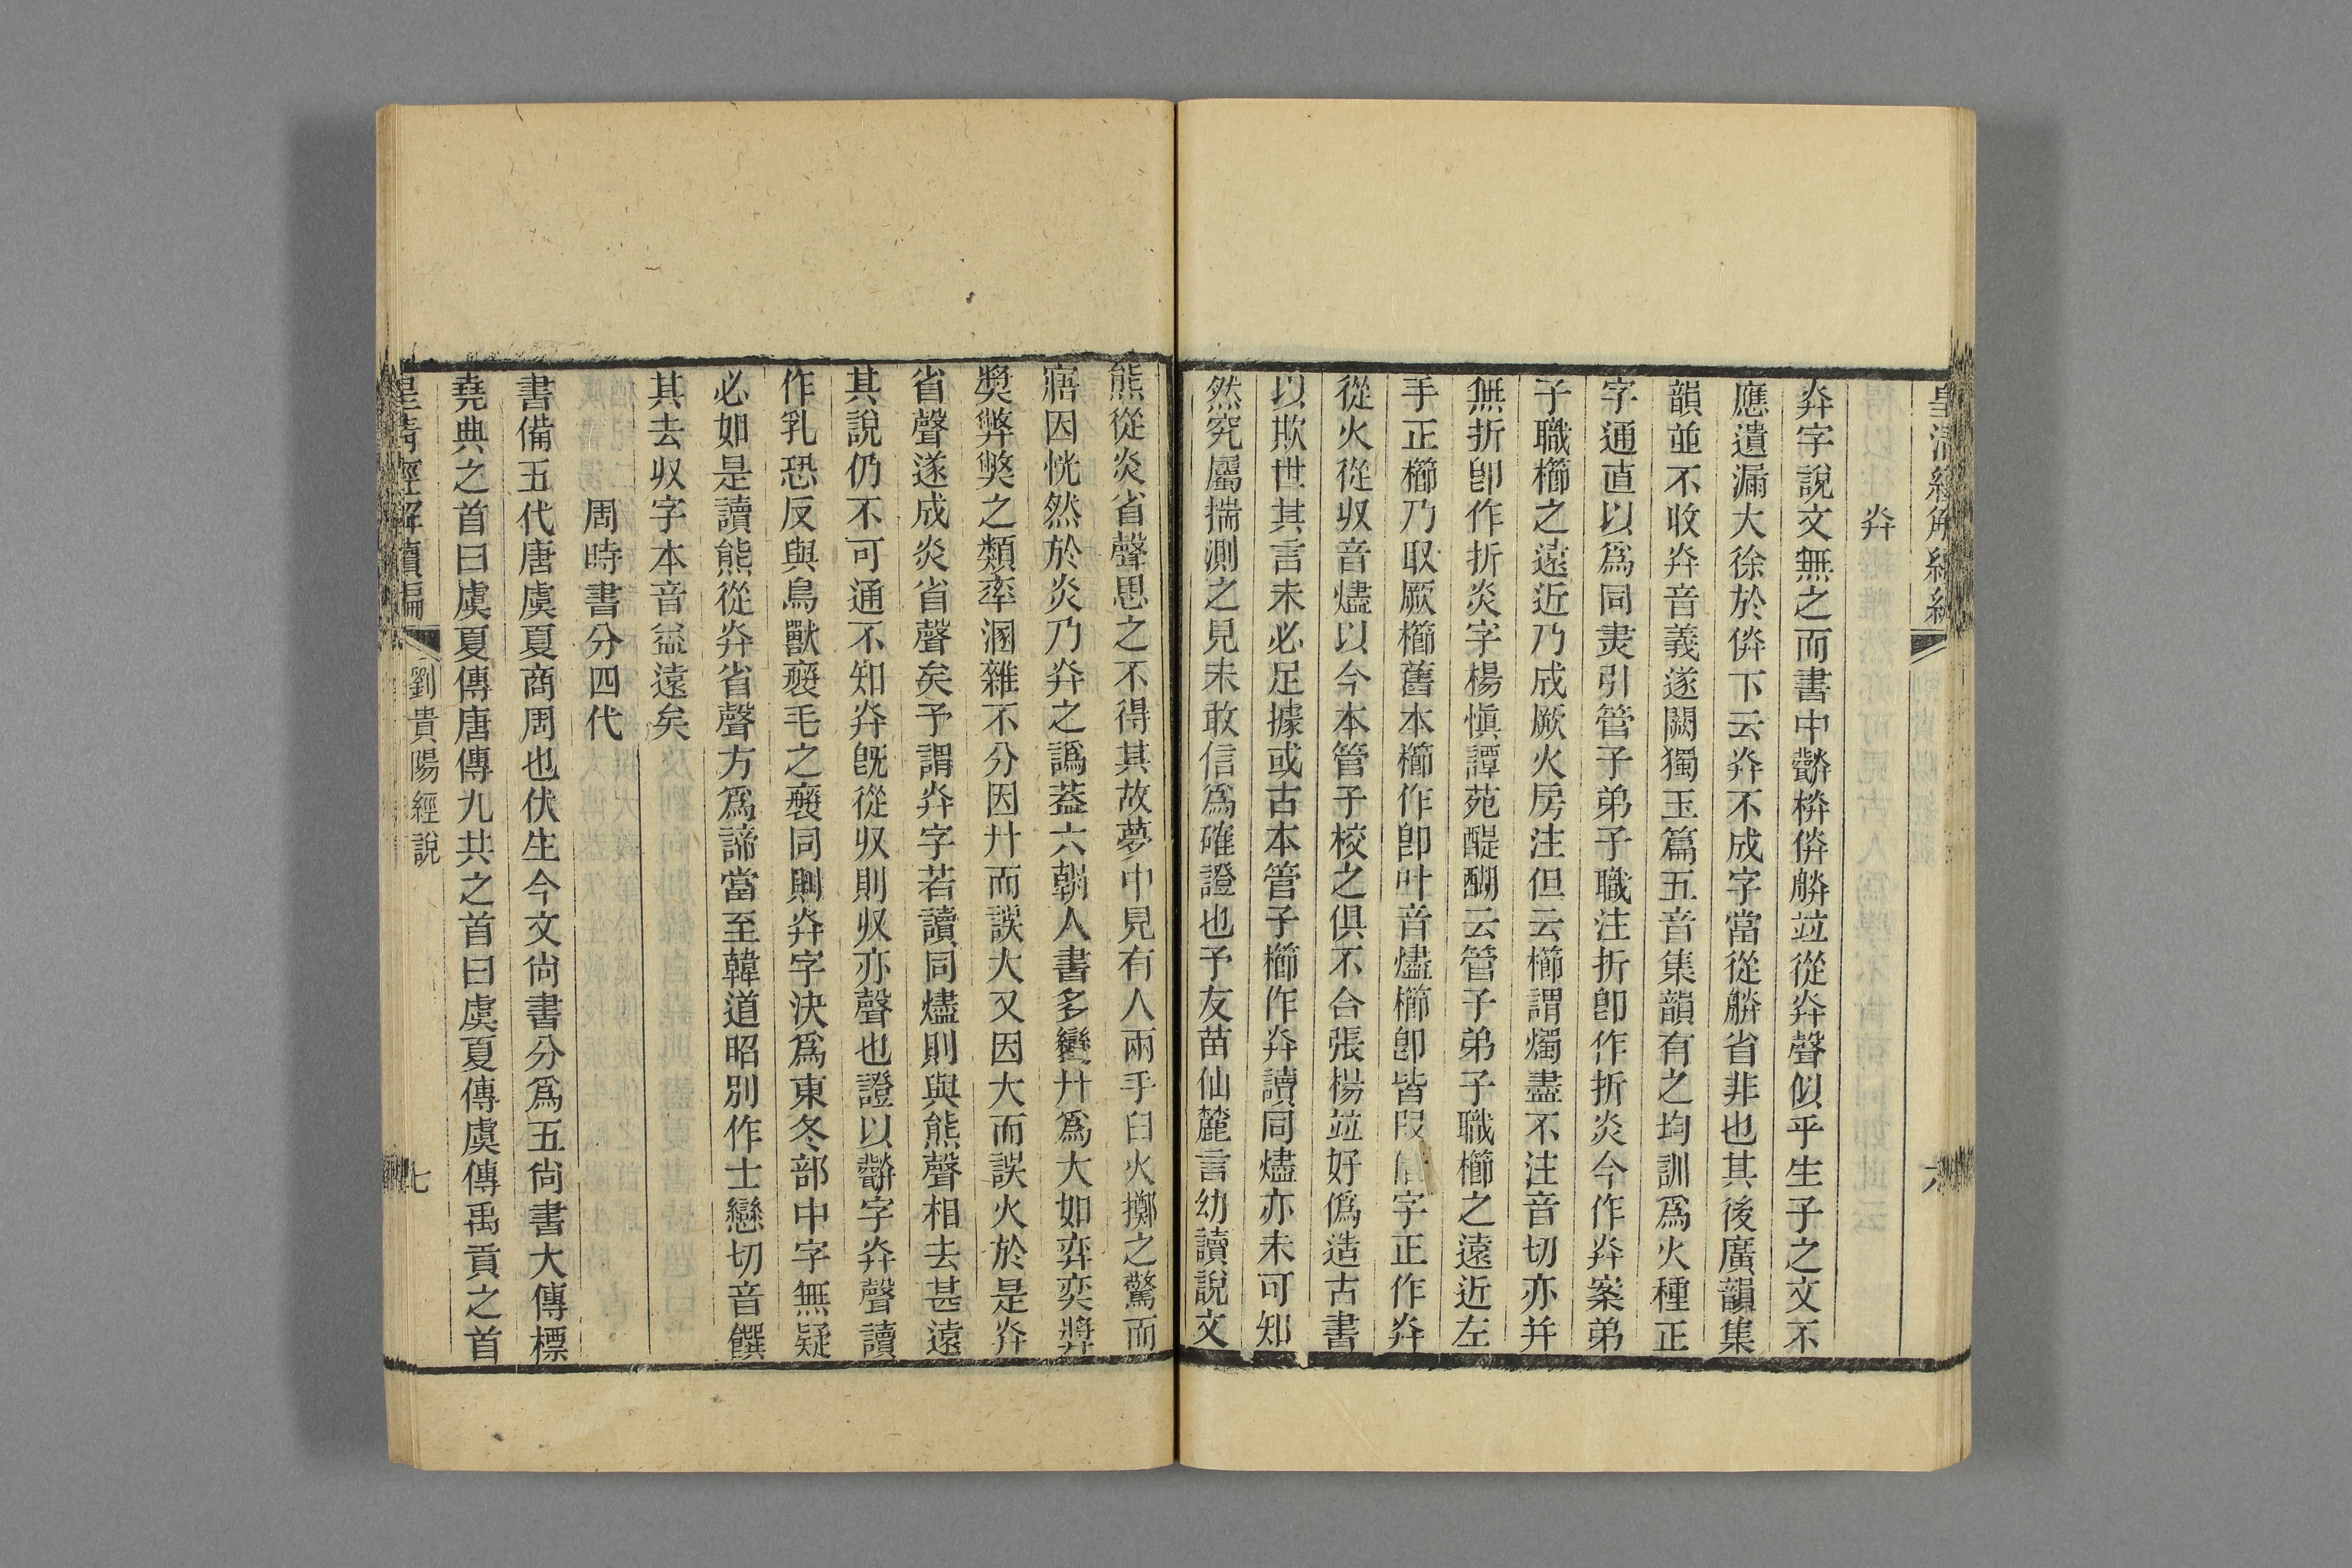 皇清經解續編
六
灷
灷字說文無之而書中䑞栚㑞朕竝從灷聲似乎生子之文不
應遺漏大徐於㑞下云灷不成字當從朕省非也其後廣韻集
韻並不收灷音義遂闕獨玉篇五音集韻有之均訓爲火種正
字通直以爲同㶳引管子弟子職注折卽作折炎今作灷案弟
子職櫛之遠近乃成厥火房注但云櫛謂燭盡不注音切亦并
無折卽作折炎字楊愼譚苑醍醐云管子弟子職櫛之遠近左
手正櫛乃取厥櫛舊本櫛作卽叶音燼櫛卽皆叚字正作灷
從火從収音燼以今本管子校之俱不合張楊竝好僞造古書
以欺世其言未必足據或古本管子櫛作灷讀同燼亦未可知
然究屬揣測之見未敢信爲確證也予友苗仙麓言幼讀說文
熊從炎省聲思之不得其故夢中見有人兩手臼火擲之驚而
寤因恍然於炎乃灷之譌葢六朝人書多變廾爲大如弈奕㢡
奬弊獘之類率溷雜不分因廾而誤大又因大而誤火於是灷
省聲遂成炎省聲矣予謂灷字若讀同燼則與熊聲相去甚遠
其說仍不可通不知灷旣從収則収亦聲也證以䑞字灷聲讀
作乳恐反與鳥獸㲝毛之㲝同則灷字決爲東冬部中字無疑
必如是讀熊從灷省聲方爲諦當至韓道昭別作士戀切音饌
其去収字本音益遠矣
周時書分四代
書備五代唐虞夏商周也伏生今文尚書分爲五尚書大傳標
堯典之首曰虞夏傳唐傳九共之首曰虞夏傳虞傳禹貢之首
皇清經解續編
劉貴陽經說
七